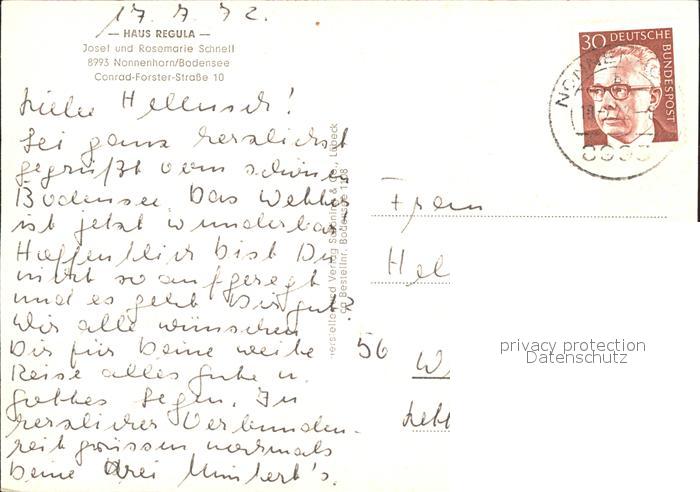 17.7.72.
— HAUS REGULA —
Josef und Rosemarie Schnell
8993 Nonnenhorn/Bodensee
Conrad-Forster-Straße 10
30 DEUTSCHE
BUNDESPOST
8993
Liebe Hellmsch!
Sei ganz herzlichst
gegrüßt vom schönen
Bodensee. Das Wetter
ist jetzt wunderbar.
Hoffentlich bist Du
nicht so aufgeregt
und es geht Dir gut?
Wir alle wünschen
Dir für Deine weite
Reise alles Gute u.
Gottes Segen. In
herzlicher Verbunden-
heit grüssen nochmals
Deine drei Mintert's.
Hersteller und Verlag Schöning & Co., Lübeck
Bestellnr. Bodensee
Frau
Hel
56 W
privacy protection
Datenschutz